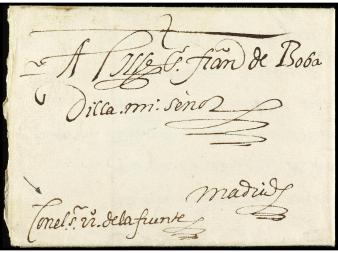 A luis s.r fran de Boba
dilla mi señor
madrid
Con el s.r v.o de la fuente